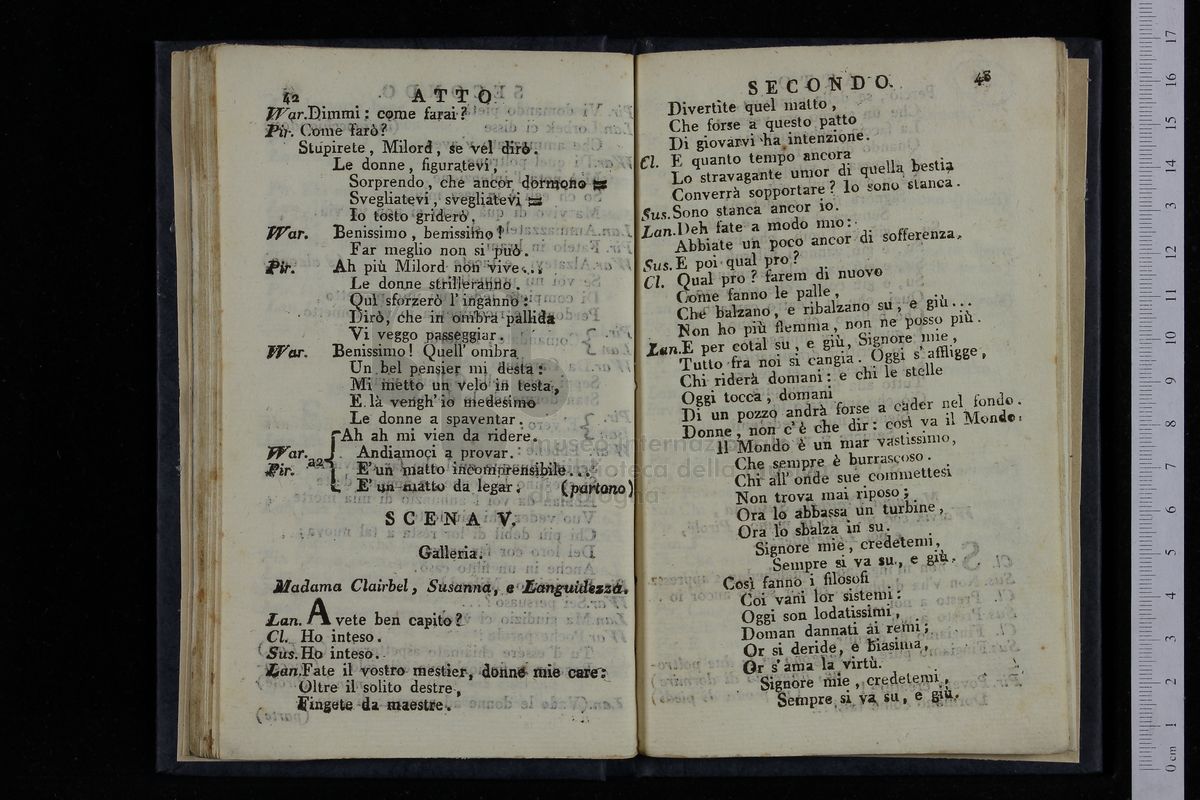 42 ATTO
War. Dimmi: come farai?
Pir. Come farò?
Stupirete, Milord, se vel dirò.
Le donne, figuratevi,
Sorprendo, che ancor dormono =
Svegliatevi, svegliatevi =
Io tosto griderò.
War. Benissimo, benissimo!
Far meglio non si può.
Pir. Ah più Milord non vive...
Le donne strilleranno.
Quì sforzerò l'inganno:
Dirò, che in ombra pallida
Vi veggo passeggiar.
War. Benissimo! Quell'ombra
Un bel pensier mi desta:
Mi metto un velo in testa,
E là vengh'io medesimo
Le donne a spaventar.
Ah ah mi vien da ridere.
War. Andiamoci a provar.
Pir. a2 E' un matto incomprensibile...
E' un matto da legar. (partono)
SCENA V.
Galleria.
Madama Clairbel, Susanna, e Languidezza.
Lan. Avete ben capito?
Cl. Ho inteso.
Sus. Ho inteso.
Lan. Fate il vostro mestier, donne mie care:
Oltre il solito destre,
Fingete da maestre.
SECONDO. 43
Divertite quel matto,
Che forse a questo patto
Di giovarvi ha intenzione.
Cl. E quanto tempo ancora
Lo stravagante umor di quella bestia
Converrà sopportare? Io sono stanca.
Sus. Sono stanca ancor io.
Lan. Deh fate a modo mio:
Abbiate un poco ancor di sofferenza.
Sus. E poi qual pro?
Cl. Qual pro? farem di nuovo
Come fanno le palle,
Che balzano, e ribalzano su, e giù...
Non ho più flemma, non ne posso più.
Lan. E per cotal su, e giù, Signore mie,
Tutto fra noi si cangia. Oggi s'affligge,
Chi riderà domani: e chi le stelle
Oggi tocca, domani
Di un pozzo andrà forse a cader nel fondo.
Donne, non c'è che dir: così va il Mondo.
Il Mondo è un mar vastissimo,
Che sempre è burrascoso.
Chi all'onde sue commettesi
Non trova mai riposo;
Ora lo abbassa un turbine,
Ora lo sbalza in su.
Signore mie, credetemi,
Sempre si va su, e giù.
Così fanno i filosofi
Coi vani lor sistemi:
Oggi son lodatissimi,
Doman dannati ai remi;
Or si deride, e biasima,
Or s'ama la virtù.
Signore mie, credetemi,
Sempre si va su, e giù.
museo internazionale
biblioteca della musica
di bologna
0 cm 1 2 3 4 5 6 7 8 9 10 11 12 13 14 15 16 17